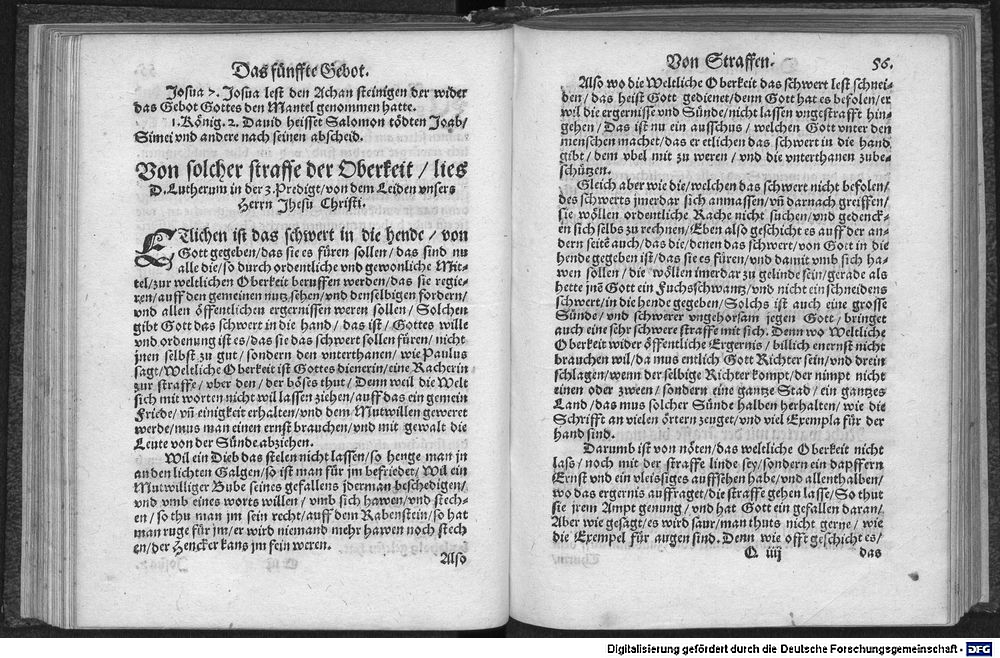 Das fünffte Gebot.
Josua 7. Josua lest den Achan steinigen der wider
das Gebot Gottes den Mantel genommen hatte.
1. König. 2. Dauid heisset Salomon tödten Joab/
Simei vnd andere nach seinen abscheid.
Von solcher straffe der Oberkeit / lies
D. Lutherum in der 3. Predigt / von dem Leiden vnsers
Herrn Jhesu Christi.
ETlichen ist das schwert in die hende / von
Gott gegeben / das sie es füren sollen / das sind nu
alle die / so durch ordentliche vnd gewonliche Mit-
tel / zur weltlichen Oberkeit beruffen werden / das sie regie-
ren / auff den gemeinen nutz sehen / vnd denselbigen fordern /
vnd allen öffentlichen ergernissen weren sollen / Solchen
gibt Gott das schwert in die hand / das ist / Gottes wille
vnd ordenung ist es / das sie das schwert sollen füren / nicht
jnen selbst zu gut / sondern den vnterthanen / wie Paulus
sagt / Weltliche Oberkeit ist Gottes dienerin / eine Racherin
zur straffe / vber den / der böses thut / Denn weil die Welt
sich mit worten nicht wil lassen ziehen / auff das ein gemein
Friede / vñ einigkeit erhalten / vnd dem Mutwillen geweret
werde / mus man einen ernst brauchen / vnd mit gewalt die
Leute von der Sünde abziehen.
Wil ein Dieb das stelen nicht lassen / so henge man jn
an den lichten Galgen / so ist man für jm befriedet / Wil ein
Mutwilliger Bube seines gefallens jderman beschedigen /
vnd vmb eines worts willen / vmb sich hawen / vnd stech-
en / so thu man jm sein recht / auff dem Rabenstein / so hat
man ruge für jm / er wird niemand mehr hawen noch stech
en / der Hencker kans jm fein weren.
Also
Von Straffen. 56.
Also wo die Weltliche Oberkeit das schwert lest schnei-
den / das heist Gott gedienet / denn Gott hat es befolen / er
wil die ergernisse vnd Sünde / nicht lassen vngestrafft hin-
gehen / Das ist nu ein ausschus / welchen Gott vnter den
menschen machet / das er etlichen das schwert in die hand
gibt / dem vbel mit zu weren / vnd die vnterthanen zube-
schützen.
Gleich aber wie die / welchen das schwert nicht befolen /
des schwerts jmerdar sich anmassen / vñ darnach greiffen /
sie wöllen ordentliche Rache nicht suchen / vnd gedenck-
en sich selbs zu rechnen / Eben also geschicht es auff der an-
dern seitē auch / das die / denen das schwert / von Gott in die
hende gegeben ist / das sie es füren / vnd damit vmb sich ha-
wen sollen / die wöllen imerdar zu gelinde sein / gerade als
hette jnē Gott ein Fuchsschwantz / vnd nicht ein schneidens
schwert / in die hende gegeben / Solchs ist auch eine grosse
Sünde / vnd schwerer vngehorsam jegen Gott / bringet
auch eine sehr schwere straffe mit sich. Denn wo Weltliche
Oberkeit wider öffentliche Ergernis / billich en ernst nicht
brauchen wil / da mus entlich Gott Richter sein / vnd drein
schlagen / wenn derselbige Richter kompt / der nimpt nicht
einen oder zween / sondern eine gantze Stad / ein gantzes
Land / das mus solcher Sünde halben herhalten / wie die
Schrifft an vielen örtern zeuget / vnd viel Exempla für der
hand sind.
Darumb ist von nöten / das weltliche Oberkeit nicht
lass / noch mit der straffe linde sey / sondern ein dapffern
Ernst vnd ein vleissiges auffsehen habe / vnd allenthalben /
wo das ergernis auffraget / die straffe gehen lasse / So thut
sie jrem Ampt genung / vnd hat Gott ein gefallen daran /
Aber wie gesagt / es wird saur / man thuts nicht gerne / wie
die Exempel für augen sind. Denn wie offt geschicht es /
Q iiij das
Digitalisierung gefördert durch die Deutsche Forschungsgemeinschaft - DFG